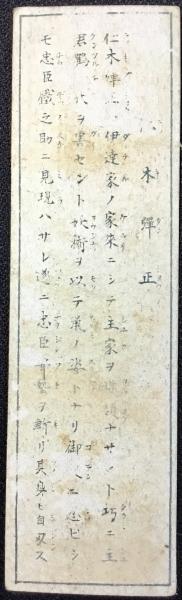 木彈正
仁木彈 伊達家ノ家来ニシテ主家ヲ ナサント巧ニ主
君鶴 ヲ害セント妖術ヲ以テ鼠ノ姿トナリ御 ニ忍ビシ
モ忠臣鐵之助ニ見現ハサレ遂ニ忠臣 ヲ斬リ其身モ自殺ス